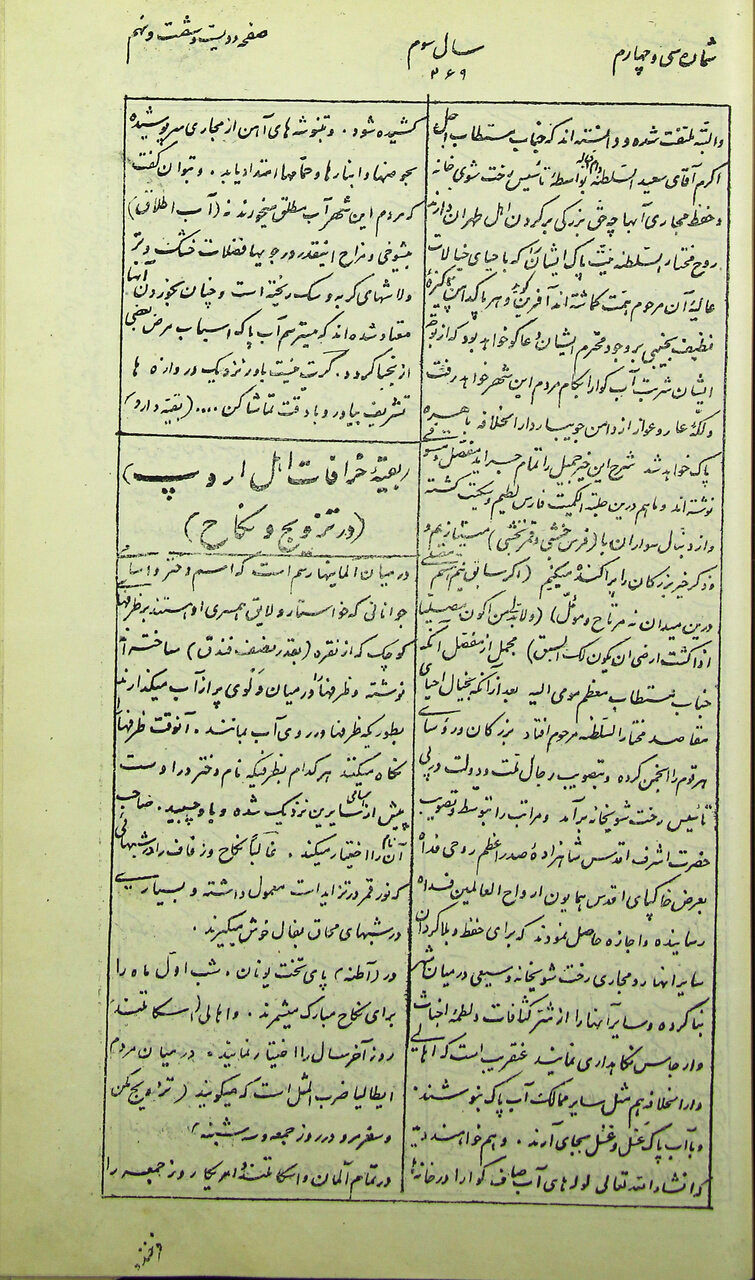 شماره سی و چهارم
سال سوم
۲۶۹
صفحه دویست و شصت و نهم
والبته ملتفت شده و دانسته‌اند که جناب مستطاب اجل
اکرم آقای سعید السلطنه دام اقباله بواسطهٔ تأسیس رخت شوی خانه
و حفظ مجاری آبها چه حق بزرگی برگردن اهل طهران دارند
روح مختار السلطنه نیت پاک ایشان که باحیای خیالات
عالیهٔ آن مرحوم همت گماشته‌اند آفرین گو و هر پاکدامن پاکیزهٔ
نظیف بجیبی بر وجود محترم ایشان دعاگو خواهد بود که از توجه
ایشان شربت آب گوارا بکام مردم این شهر خواهد رفت
ولکهٔ عار و عوار از دامن جویبار دار الخلافه باهره
پاک خواهد شد شرح این خبر جمیل را تمام جراید مفصل
نوشته‌اند و ما هم درین حلبة الکمیت فارس لطیم و سکیت گشته
و از دنبال سواران با (فرس خشبی و قمر نخشبی) میتازیم و
و ذکر خیر بزرگان را پراکنده میکنیم (اگر سابق نیم اسم
درین میدان نه مرتاح و مومل) (ولابد لمن اکون مصلیا
اذا کنت ارضی ان یکون لک السبق) مجمل از مفصل آنکه
جناب مستطاب معظم مومی الیه بعد از آنکه بخیال احیای
مقاصد مختار السلطنه مرحوم افتاد بزرگان و رؤسای
هر قوم را انجمن کرده و بتصویب رجال ملت و دولت در پی
تأسیس رخت شویخانه برآمد و مراتب را بتوسط و تصویب
حضرت اشرف اقدس شاهزاده صدر اعظم روحی فداه
بعرض خاکپای اقدس همایون ارواح العالمین فداه
رسانیده و اجازه حاصل نمودند که برای حفظ و بلاگردان
سایر انهار و مجاری رخت شویخانه وسیعی در میان شهر
بنا کرده و سایر آبها را از شر کثافات و لطمهٔ اخباث
وارجاس نگاهداری نمایند عنقریب است که اهالی
دار الخلافه هم مثل سایر ممالک آب پاک بنوشند
و با آب پاک غسل و غسل بجای آرند . و هم خواهند دید
که انشاء الله تعالی لوله‌های آب صاف گوارا در خانه‌ها
کشیده شود . و تنوشه‌های آهن از مجاری سرپوشیده
بحوضها و انبارها و حمامها امتداد یابد . و بتوان گفت
که مردم این شهر آب مطلق میخورند نه (آب اطلاق)
بشوخی و مزاح اینقدر در جویها فضلات خشک و تر
ولاشهای گربه و سگ ریخته است و چنان بخوردن آنها
معتاد شده‌اند که میترسم آب پاک اسباب مرض بعضی
از نجبا گردد . گرت نیست باور نزدیک دروازه ها
تشریف بیاور و با دقت تماشا کن .... (بقیه دارد)
(بقیهٔ خرافات اهل اروپ)
(در تزویج و نکاح)
در میان المانیها رسم است که اسم دختر و اسامی
جوانانی که خواستار و لایق همسری او هستند بر ظرفهای
کوچک که از نقره (بقدر نصف فندق) ساخته‌اند
نوشته و ظرفها را در میان دلوی پر از آب میگذارند
بطوریکه ظرفها در روی آب بمانند . آنوقت ظرفها را
نگاه میکنند هر کدام بظرفیکه نام دختر در اوست
پیش از سایرین نزدیک شده و باو چسبید . صاحب
آن نام را اختیار میکند . غالبا نکاح و زفاف را در شبهائی
که نور قمر در تزاید است معمول داشته و بسیاری
در شبهای محاق بفال خوش میگیرند .
در (آطنه) پای تخت یونان . شب اول ماه را
برای نکاح مبارک میشمرند . و اهالی (اسکاتلند)
روز آخر سال را اختیار نمایند . در میان مردم
ایطالیا ضرب المثل است که میگویند (تزویج مکن
و سفر مرو در روز جمعه و سه شنبه)
در تمام آلمان و اسکاتلند و امریکا روز جمعه را